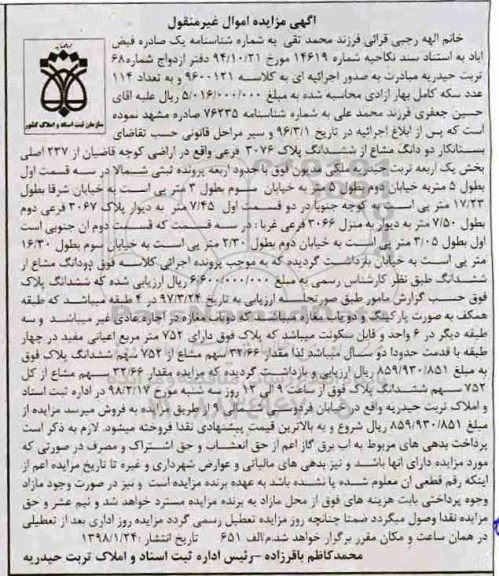 آگهی مزایده اموال غیرمنقول
خانم الهه رجبی قرائی فرزند محمد تقی به شماره شناسنامه یک صادره فیض
اباد به استناد سند نکاحیه شماره ۱۴۶۱۹ مورخ ۹۴/۱۰/۲۱ دفتر ازدواج شماره ۶۸
تربت حیدریه مبادرت به صدور اجرائیه ای به کلاسه ۹۶۰۰۱۲۱ و به تعداد ۱۱۴
عدد سکه کامل بهار ازادی محاسبه شده به مبلغ ۵/۰۱۶/۰۰۰/۰۰۰ ریال علیه اقای
حسین جعفری فرزند محمد علی به شماره شناسنامه ۷۶۲۳۵ صادره مشهد نموده
است که پس از ابلاغ اجرائیه در تاریخ ۹۶/۳/۱ و سیر مراحل قانونی حسب تقاضای
بستانکار دو دانگ مشاع از ششدانگ پلاک ۳۰۷۶ فرعی واقع در اراضی کوچه قاضیان از ۲۳۷ اصلی
بخش یک اربعه تربت حیدریه ملکی مدیون فوق با حدود اربعه پرونده ثبتی شمالا در سه قسمت اول
بطول ۵ متربه خیابان دوم بطول ۵ متر به خیابان سوم بطول ۳ متر پی است به خیابان شرقا بطول
۱۷/۲۳ متر پی است به کوچه جنوبا در دو قسمت اول ۷/۴۵ متر به دیوار پلاک ۳۰۶۷ فرعی دوم
بطول ۷/۵۰ متر به دیوار به منزل ۳۰۶۶ فرعی غربا : در سه قسمت که قسمت دوم ان جنوبی است
اول بطول ۳/۰۵ متر پی است به خیابان دوم بطول ۲/۳۰ متر پی است به خیابان سوم بطول ۱۶/۳۰
متر پی است به خیابان بازداشت گردیده که به موجب پرونده اجرائی کلاسه فوق دودانگ مشاع از
ششدانگ طبق نظر کارشناس رسمی به مبلغ ۶/۶۰۰/۰۰۰/۰۰۰ ریال ارزیابی شده که ششدانگ پلاک
فوق حسب گزارش مامور طبق صورتجلسه ارزیابی به تاریخ ۹۷/۳/۲۴ در ۴ طبقه میباشد که طبقه
همکف به صورت پارکینگ و دوباب مغازه میباشد که دوباب مغازه در اجاره عادی غیر میباشد و سه
طبقه دیگر در ۶ واحد و قابل سکونت میباشد که پلاک فوق دارای ۷۵۲ متر مربع اعیانی مفید در چهار
طبقه با قدمت حدودا دو سال میباشد لذا مقدار ۳۲/۶۶ سهم مشاع از ۷۵۲ سهم ششدانگ پلاک فوق
به مبلغ ۸۵۹/۹۳۰/۸۵۱ ریال ارزیابی و بازداشت گردیده که مزایده مقدار ۳۲/۶۶ سهم مشاع از کل
۷۵۲ سهم ششدانگ پلاک فوق از ساعت ۹ الی ۱۲ روز سه شنبه مورخ ۹۸/۲/۱۷ در اداره ثبت اسناد
و املاک تربت حیدریه واقع در خیابان فردوسی شمالی از طریق مزایده به فروش میرسد مزایده از
مبلغ ۸۵۹/۹۳۰/۸۵۱ ریال شروع و به بالاترین قیمت پیشنهادی نقدا فروخته میشود. لازم به ذکر است
پرداخت بدهی های مربوط به اب برق گاز اعم از حق انشعاب و حق اشتراک و مصرف در صورتی که
مورد مزایده دارای انها باشد و نیز بدهی های مالیاتی و عوارض شهرداری و غیره تا تاریخ مزایده اعم از
اینکه رقم قطعی ان معلوم شده یا نشده باشد به عهده برنده مزایده است و نیز در صورت وجود مازاد
وجوه پرداختی بابت هزینه های فوق از محل مازاد به برنده مزایده مسترد خواهد شد و نیم عشر و حق
مزایده نقدا وصول میگردد ضمنا چنانچه روز مزایده تعطیل رسمی گردد مزایده روز اداری بعد از تعطیلی
در همان ساعت و مکان مقرر برگزار خواهد شد.م/الف ۶۵۱ تاریخ انتشار :۱۳۹۸/۱/۲۴
محمدکاظم باقرزاده -رئیس اداره ثبت اسناد و املاک تربت حیدریه
سازمان ثبت اسناد و املاک کشور